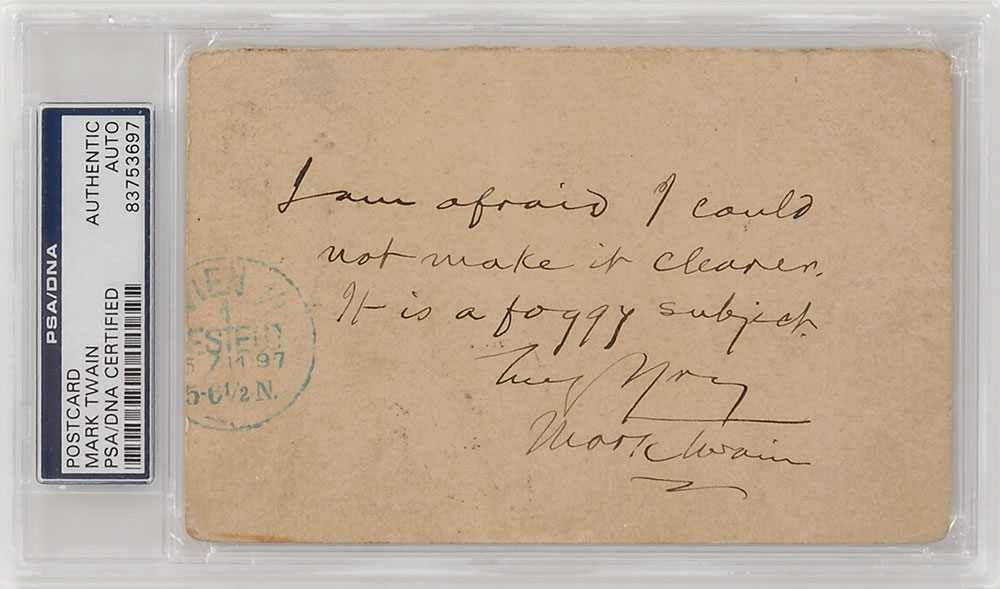 PSA/DNA
POSTCARD
MARK TWAIN
PSA/DNA CERTIFIED
AUTHENTIC
AUTO
83753697
I am afraid I could
not make it clearer.
It is a foggy subject.
Truly Yours
Mark Twain
WIEN
1
BESTELLT
11 97
5-6 1/2 N.